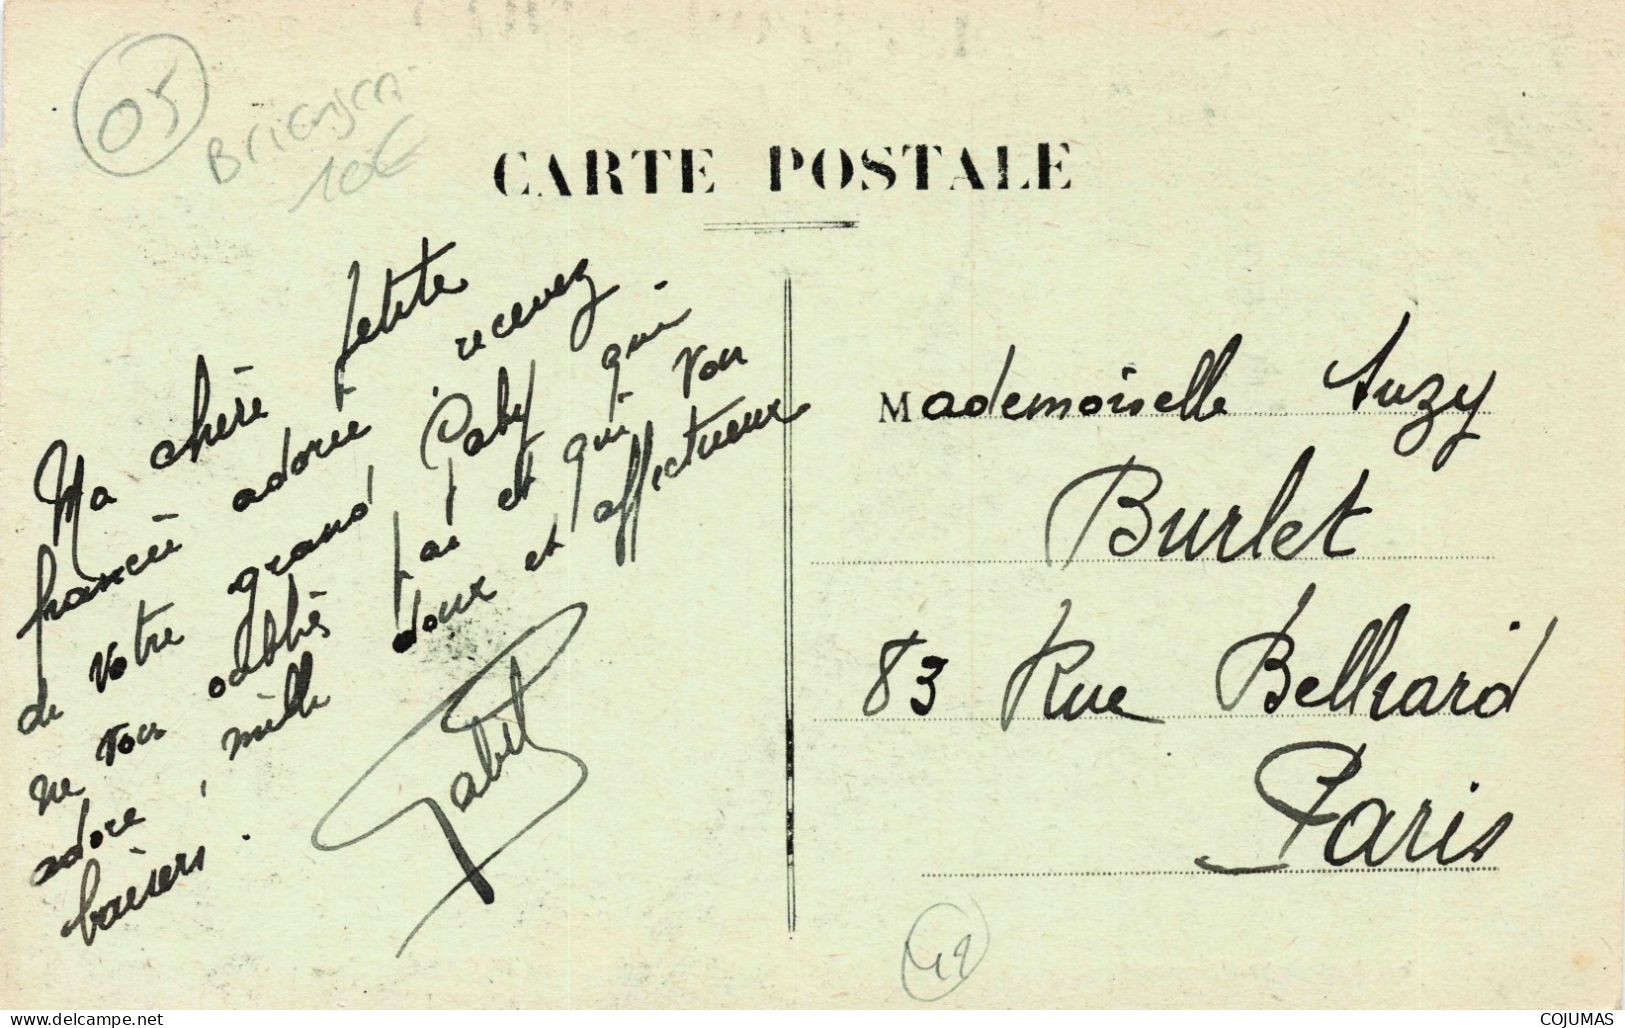 05
Briançon
10€
CARTE POSTALE
Ma chère petite
fiancée adorée recevez
de votre grand Gaby qui
ne vous oubliés pas et qui vous
adore, mille doux et affectueux
baisers.
Gaby
Mademoiselle Suzy
Burlet
83 Rue Belliard
Paris
42
www.delcampe.net
COJUMAS